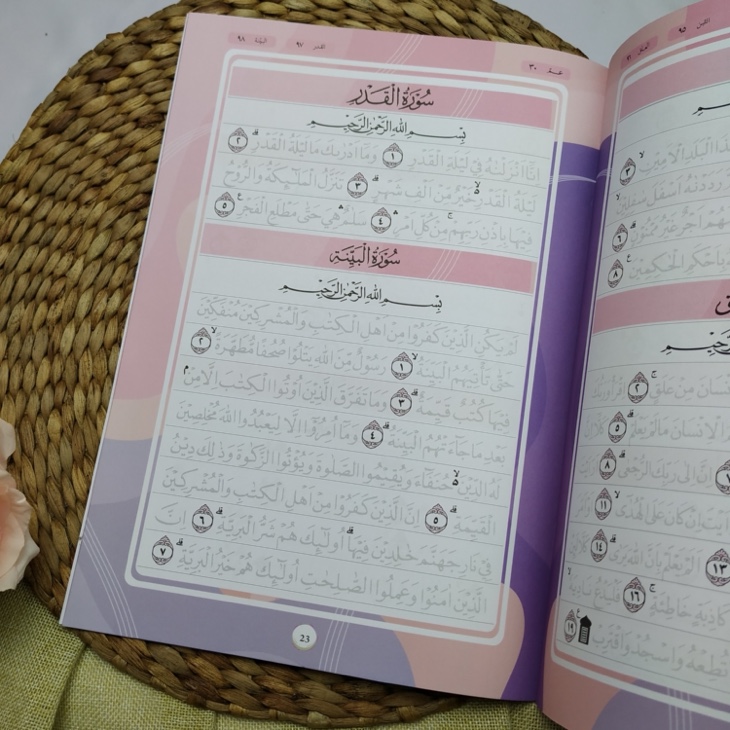 عمّ ٣٠
القدر ٩٧
البيّنة ٩٨
سُوْرَةُ الْقَدْرِ
بِسْمِ اللهِ الرَّحْمٰنِ الرَّحِيْمِ
اِنَّآ اَنْزَلْنٰهُ فِيْ لَيْلَةِ الْقَدْرِ ١ وَمَآ اَدْرٰىكَ مَا لَيْلَةُ الْقَدْرِۗ ٢
لَيْلَةُ الْقَدْرِ ەۙ خَيْرٌ مِّنْ اَلْفِ شَهْرٍۗ ٣ تَنَزَّلُ الْمَلٰۤىِٕكَةُ وَالرُّوْحُ
فِيْهَا بِاِذْنِ رَبِّهِمْۚ مِنْ كُلِّ اَمْرٍۛ ٤ سَلٰمٌ ۛهِيَ حَتّٰى مَطْلَعِ الْفَجْرِ ٥
سُوْرَةُ الْبَيِّنَةِ
بِسْمِ اللهِ الرَّحْمٰنِ الرَّحِيْمِ
لَمْ يَكُنِ الَّذِيْنَ كَفَرُوْا مِنْ اَهْلِ الْكِتٰبِ وَالْمُشْرِكِيْنَ مُنْفَكِّيْنَ
حَتّٰى تَأْتِيَهُمُ الْبَيِّنَةُۙ ١ رَسُوْلٌ مِّنَ اللّٰهِ يَتْلُوْا صُحُفًا مُّطَهَّرَةًۙ ٢
فِيْهَا كُتُبٌ قَيِّمَةٌۗ ٣ وَمَا تَفَرَّقَ الَّذِيْنَ اُوْتُوا الْكِتٰبَ اِلَّا مِنْۢ
بَعْدِ مَا جَاۤءَتْهُمُ الْبَيِّنَةُۗ ٤ وَمَآ اُمِرُوْٓا اِلَّا لِيَعْبُدُوا اللّٰهَ مُخْلِصِيْنَ
لَهُ الدِّيْنَ ەۙ حُنَفَاۤءَ وَيُقِيْمُوا الصَّلٰوةَ وَيُؤْتُوا الزَّكٰوةَ وَذٰلِكَ دِيْنُ
الْقَيِّمَةِۗ ٥ اِنَّ الَّذِيْنَ كَفَرُوْا مِنْ اَهْلِ الْكِتٰبِ وَالْمُشْرِكِيْنَ
فِيْ نَارِ جَهَنَّمَ خٰلِدِيْنَ فِيْهَاۗ اُولٰۤىِٕكَ هُمْ شَرُّ الْبَرِيَّةِۗ ٦ اِنَّ
الَّذِيْنَ اٰمَنُوْا وَعَمِلُوا الصّٰلِحٰتِ اُولٰۤىِٕكَ هُمْ خَيْرُ الْبَرِيَّةِۗ ٧
23
التين ٩٥
الْبَلَدِ الْاَمِيْنِۙ ٣
رَدَدْنٰهُ اَسْفَلَ
اَجْرٌ غَيْرُ مَمْنُوْنٍۗ ٦
بِاَحْكَمِ الْحٰكِمِيْنَ ٨
مِنْ عَلَقٍۚ ٢ اِقْرَأْ وَرَبُّكَ
الْاِنْسَانَ مَا لَمْ يَعْلَمْۗ ٥
اِنَّ اِلٰى رَبِّكَ الرُّجْعٰىۗ ٨
اِنْ كَانَ عَلَى الْهُدٰىٓۙ ١١
١٣ اَلَمْ يَعْلَمْ بِاَنَّ اللّٰهَ يَرٰىۗ ١٤
كَاذِبَةٍ خَاطِئَةٍۚ ١٦
تُطِعْهُ وَاسْجُدْ وَاقْتَرِبْ ١٩